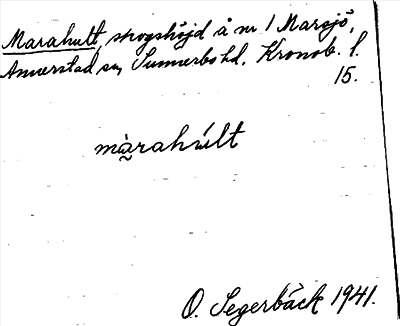 Marahult, skogshöjd å nr 1 Marsjö,
Annerstad sn, Sunnerbo hd. Kronob. l.
15.
màrahúlt
O. Segerbäck 1941.